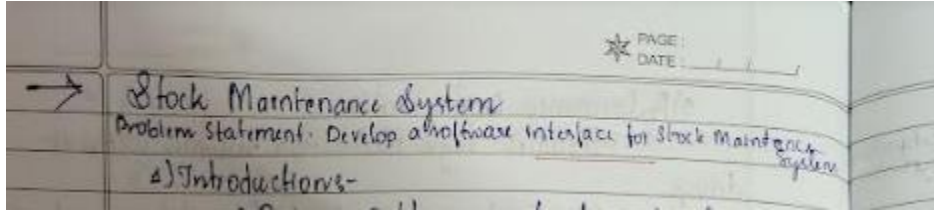 PAGE:
DATE:
→ Stock Maintenance System
Problem Statement. Develop a software interface for Stock Maintenance
System
1) Introduction:-